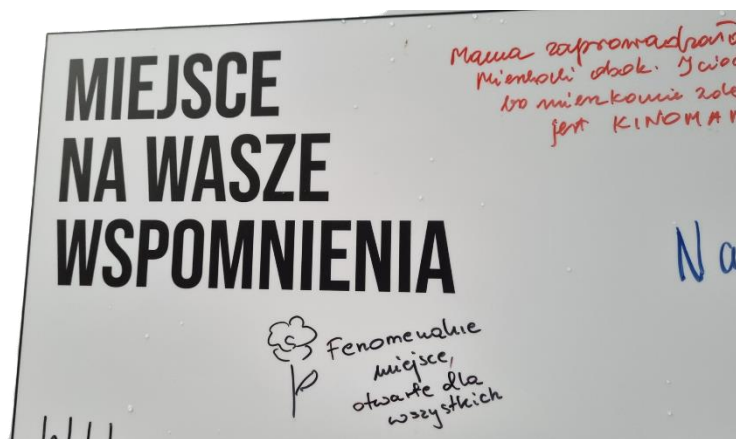 MIEJSCE
NA WASZE
WSPOMNIENIA
Mama zaprowadzał
obok.
bo
jest KINOMA
Na
Fenomenalne
miejsce,
otwarte dla
wszystkich